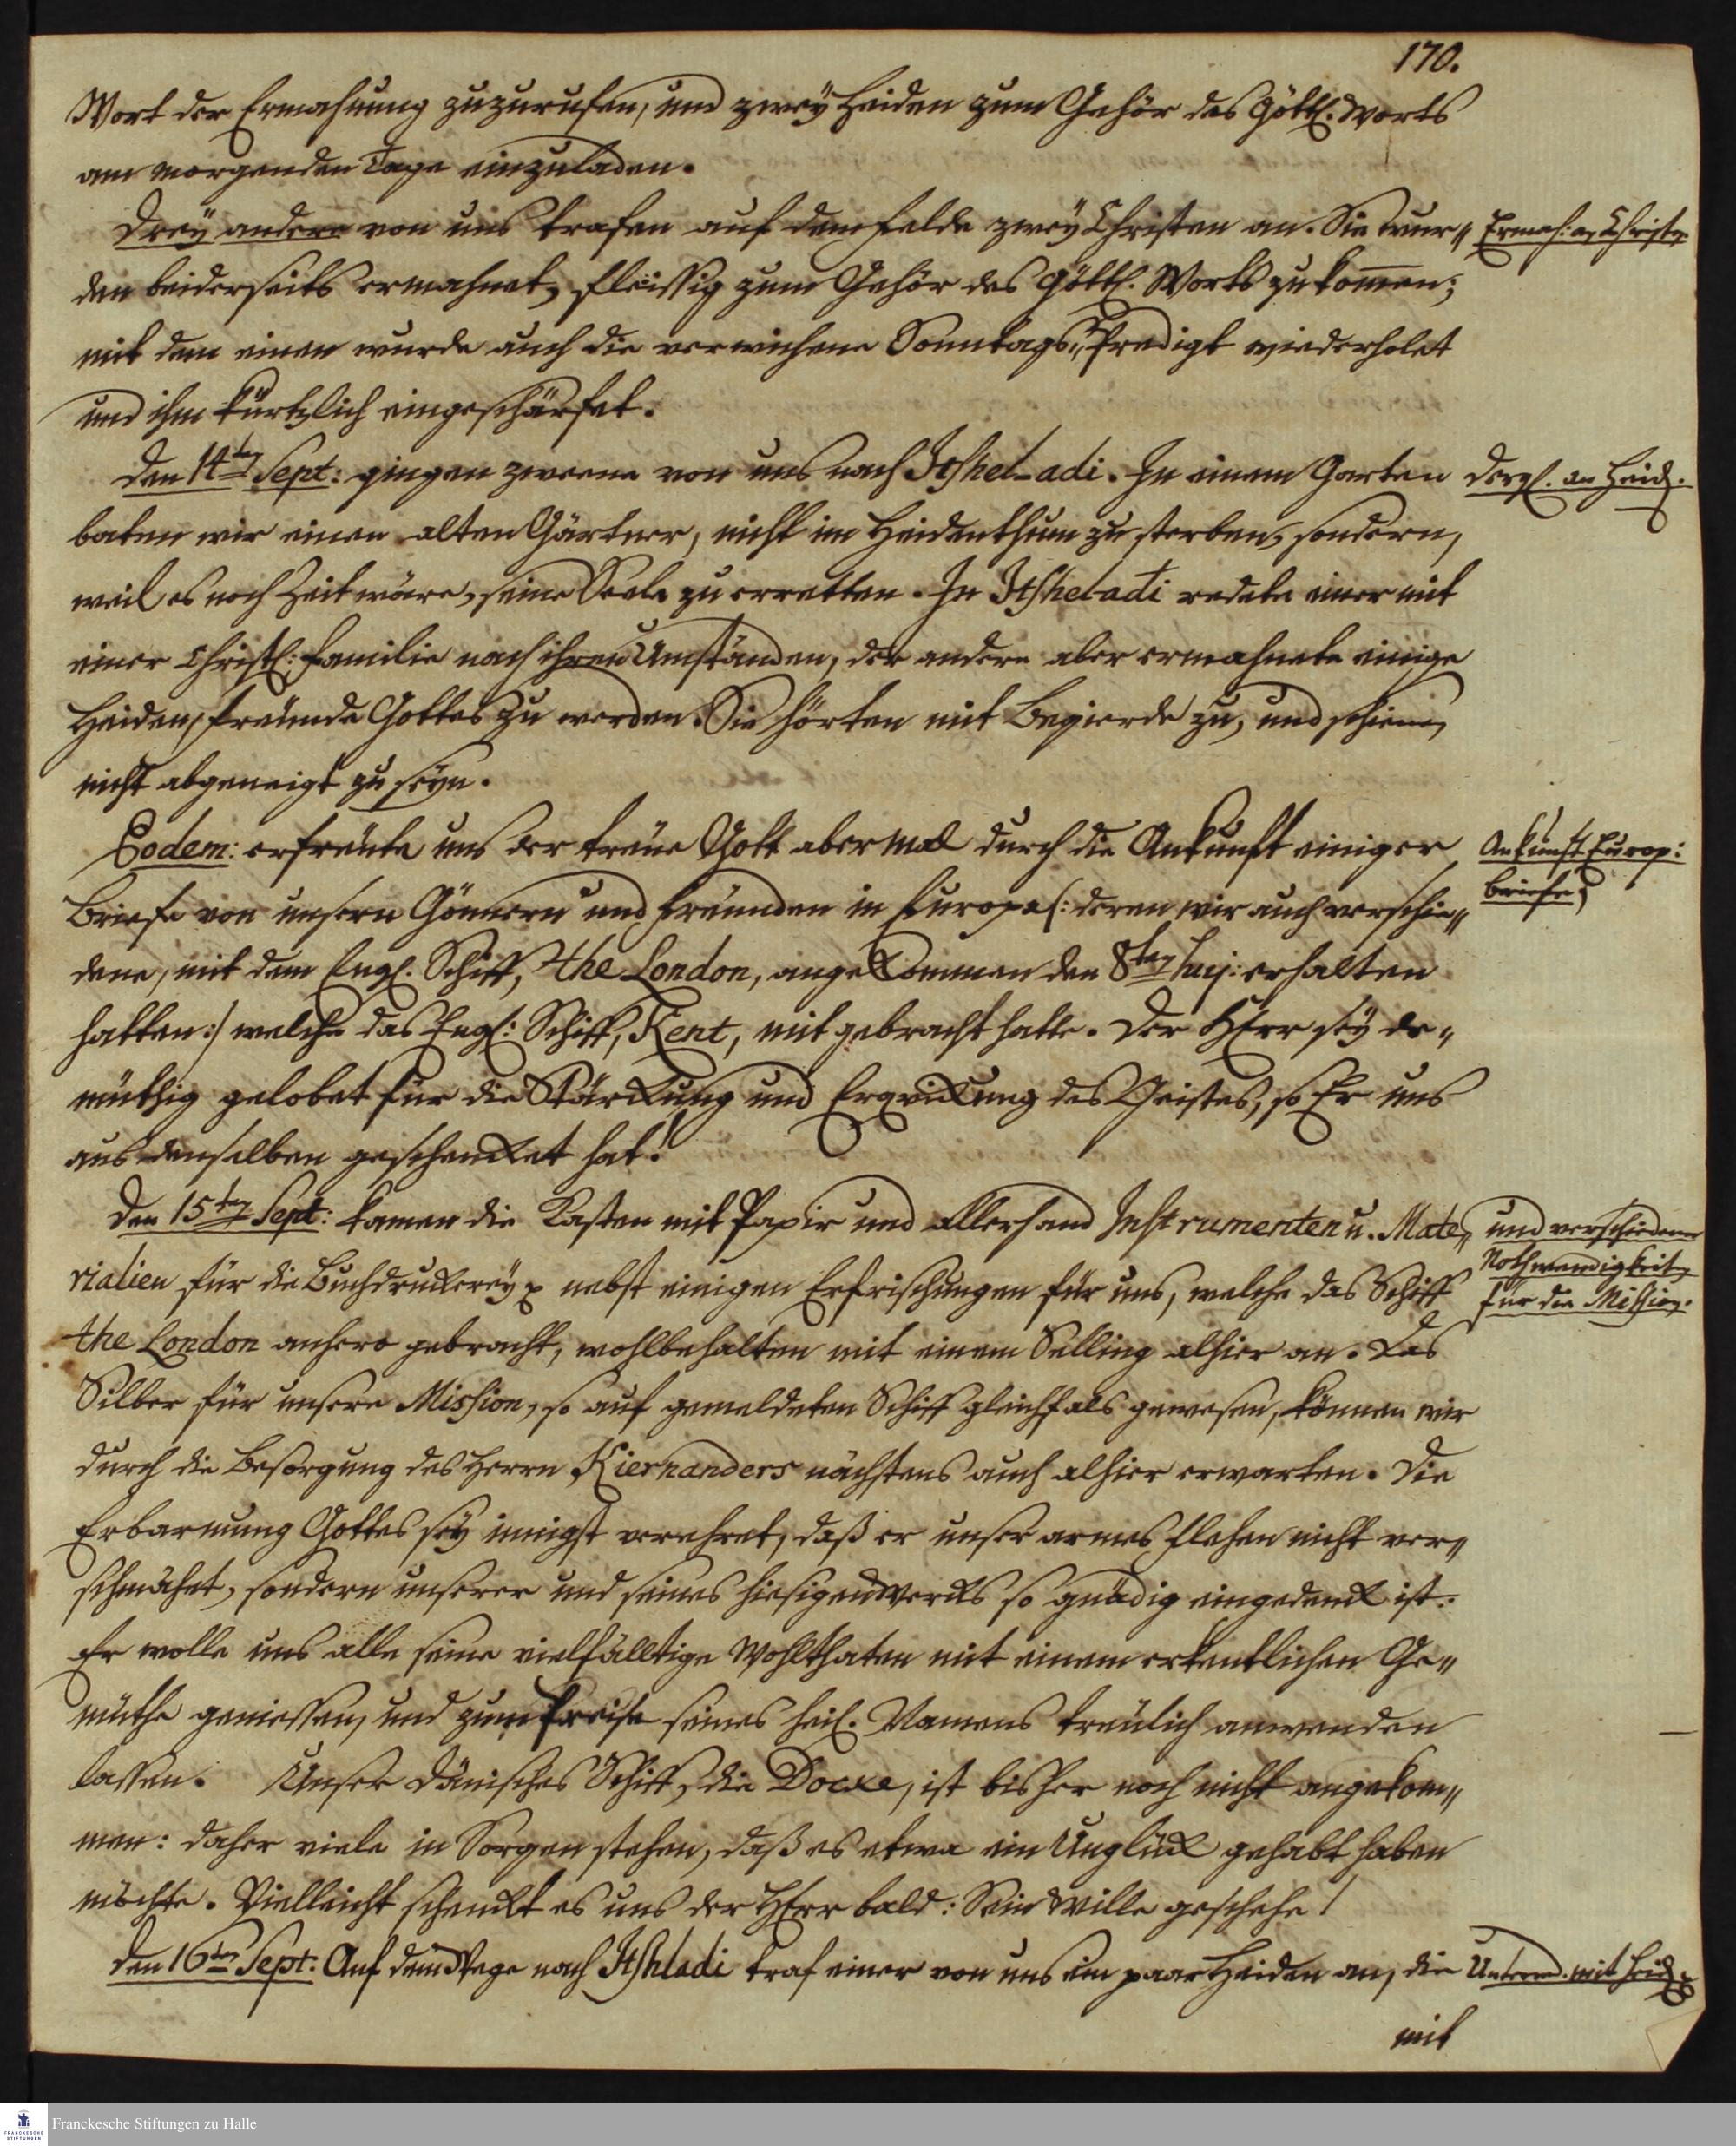 170.
Wort der Ermahnung zuzurufen, und zwey Heiden zum Gehör des Göttl. Worts
am morgenden Tage einzuladen.
Drey andere von uns trafen auf dem Felde zwey Christen an. Sie wur„
Ermah: an Christen
den beiderseits ermahnet, fleissig zum Gehör des Göttl. Worts zu kom̅en;
mit dem einen wurde auch die verwichene Sonntags„Predigt wiederholet
und ihm kürtzlich eingeschärfet.
Den 14ten Sept: gingen zweene von uns nach Itshel-adi. In einem Garten
Dergl. an Heid.
baten wir einen alten Gärtner, nicht im Heidenthum zu sterben, sondern,
weil es noch Zeit wäre, seine Seele zu erretten. In Itsheladi redete einer mit
einer Christl: Familie nach ihren Umständen, der andere aber ermahnete einige
Heiden, Freunde Gottes zu werden. Sie hörten mit Begierde zu, und schienen
nicht abgeneigt zu seyn.
Eodem: erfreute uns der treue Gott abermal durch die Ankunft einiger
Ankunft Europ:
Briefe,
Briefe von unsern Gönnern und Freunden in Europa (: deren wir auch verschie„
dene, mit dem Engl. Schiff, the London, angekommen den 8ten huj: erhalten
hatten:) welche das Engl: Schiff, Kent, mitgebracht hatte. Der HErr sey de„
müthig gelobet für die Stärckung und Erqvickung des Geistes, so Er uns
aus denselben geschencket hat!
Den 15ten Sept: kamen die Kasten mit Papir und allerhand Instrumenten u. Mate„
und verschiedene
Nothwendigkeiten
für die Mission.
rialien für die Buchdruckerey nebst einigen Erfrischungen für uns, welche das Schiff
the London anhero gebracht, wohlbehalten mit einem Selling alhier an. Das
Silber für unsere Mission, so auf gemeldeten Schiff gleichfals gewesen, können wir
durch die Besorgung des Herrn Kiernanders nächstens auch alhier erwarten. Die
Erbarmung Gottes sey innigst verehret, daß er unser armes Flehen nicht ver„
schmähet, sondern unserer und seines hiesigen Wercks so gnädig eingedenck ist.
Er wolle uns alle seine vielfälltige Wohlthaten mit einem erkentlichen Ge„
müthe geniessen, und zum Preise seines heil. Namens treulich anwenden
lassen. Unser Dänisches Schiff, die Docke, ist bisher noch nicht angekom„
men: daher viele in Sorgen stehen, daß es etwa ein Unglück gehabt haben
möchte. Vielleicht schenckt es uns der HErr bald: Sein Wille geschehe!
Den 16ten Sept: Auf dem Wege nach Itshladi traf einer von uns ein paar Heiden an, die
Unterred. mit Heid.
mit
Franckesche Stiftungen zu Halle
FRANCKESCHE
STIFTUNGEN